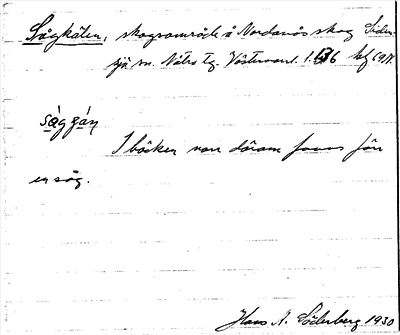 Sågkälen, skogsområde å Nordanås skog Siden-
sjö sn. Nätra tg. Västernorrl. l.
såggán
I bäcken norr därom fanns förr
en såg.
Hans A. Söderberg 1930